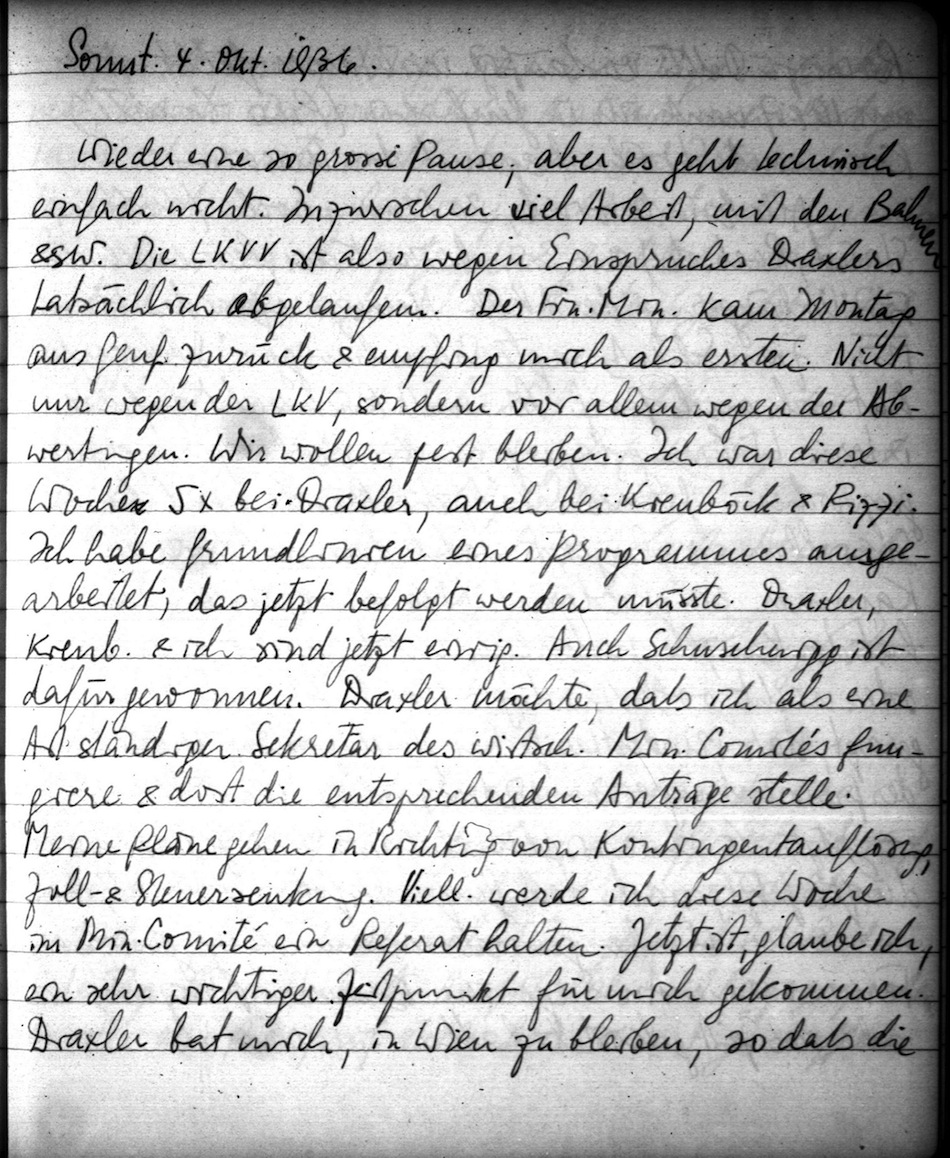 Sonnt. 4. Okt. 1936.
Wieder eine so grosse Pause, aber es geht technisch
einfach nicht. Inzwischen viel Arbeit, mit den Bahnen
usw. Die LKVV ist also wegen Einspruches Draxlers
tatsächlich abgelaufen. Der Fin. Min. kam Montag
aus Genf zurück & empfing mich als ersten. Nicht
nur wegen der LKV, sondern vor allem wegen der Ab-
wertungen. Wir wollen fest bleiben. Ich war diese
Woche 5x bei Draxler, auch bei Kienböck & Rizzi.
Ich habe Grundlinien eines Programmes ausge-
arbeitet, das jetzt befolgt werden müsste. Draxler,
Kienb. & ich sind jetzt einig. Auch Schuschnigg ist
dafür gewonnen. Draxler möchte, dass ich als eine
Art ständiger Sekretär des wirtsch. Min. Comités fun-
giere & dort die entsprechenden Anträge stelle.
Meine Pläne gehen in Richtung von Kontingentauflösung,
Zoll- & Steuersenkung. Viell. werde ich diese Woche
im Min. Comité ein Referat halten. Jetzt ist, glaube ich,
ein sehr wichtiger Zeitpunkt für mich gekommen.
Draxler bat mich, in Wien zu bleiben, so dass die